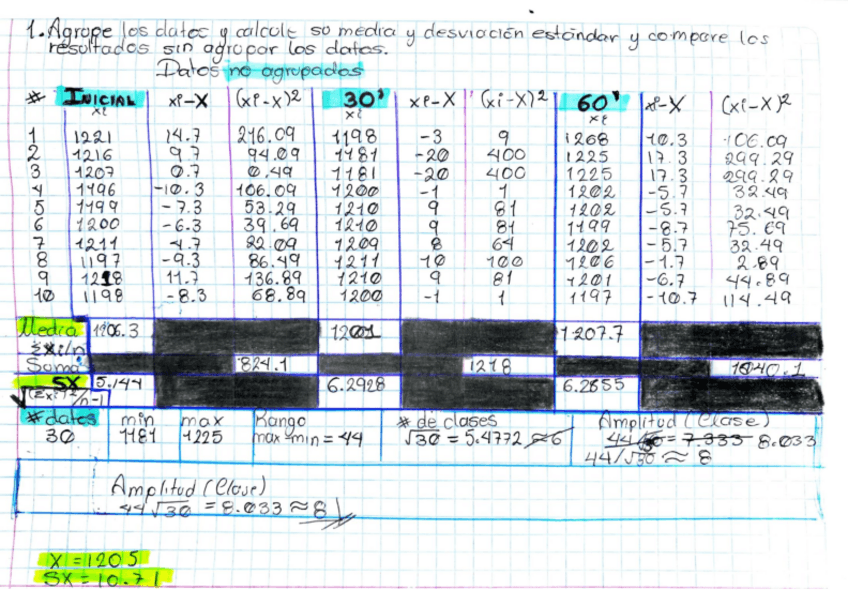 1. Agrupe los datos y calcule su media y desviación estándar y compare los
resultados sin agrupar los datos.
Datos no agrupados
# INICIAL xi xi-X (xi-x)2 30' xi xi-X (xi-X)2 60' xi xi-X (xi-X)2
1 1221 14.7 216.09 1198 -3 9 1268 10.3 106.09
2 1216 9.7 94.09 1181 -20 400 1225 17.3 299.29
3 1207 0.7 0.49 1181 -20 400 1225 17.3 299.29
4 1196 -10.3 106.09 1200 -1 1 1202 -5.7 32.49
5 1199 -7.3 53.29 1210 9 81 1202 -5.7 32.49
6 1200 -6.3 39.69 1210 9 81 1199 -8.7 75.69
7 1211 4.7 22.09 1209 8 64 1202 -5.7 32.49
8 1197 -9.3 86.49 1211 10 100 1206 -1.7 2.89
9 1218 11.7 136.89 1210 9 81 1201 -6.7 44.89
10 1198 -8.3 68.89 1200 -1 1 1197 -10.7 114.49
Media 1206.3 1201 1207.7
Σxi/n
Suma 824.1 1218 1040.1
SX 5.144 6.2928 6.2655
# datos min max Rango # de clases Amplitud (Clase)
30 1181 1225 max-min = 44 √30 = 5.4772 ≈6 = 7.333 8.033
44/√30 ≈ 8
Amplitud (Clase)
44√30 = 8.033 ≈ 8
X = 1205
SX = 10.71